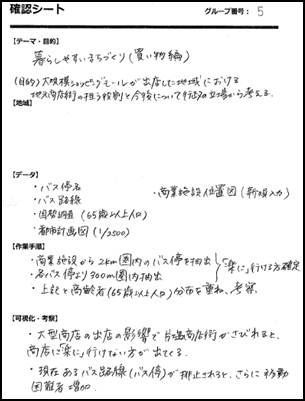 確認シート
グループ番号: 5
【テーマ・目的】
暮らしやすいまちづくり(買い物編)
(目的)大規模ショッピングモールが出店した地域における
地元商店街の担う役割と今後について行政の立場から考える。
【地域】
【データ】
・バス停名
・商業施設位置図(新規入力)
・バス路線
・国勢調査(65歳以上人口)
・都市計画図(1/2500)
【作業手順】
・商業施設から2km圏内のバス停を抽出
・各バス停より300m圏内抽出
「楽に」行ける方確定
・上記と高齢者(65歳以上人口)分布を重ね、考察
【可視化・考察】
・大型商店の出店の影響で 商店街がさびれると、
商店に「楽に」行けない方が出てくる。
・現在あるバス路線(バス停)が排止されると、さらに移動
困難者増加